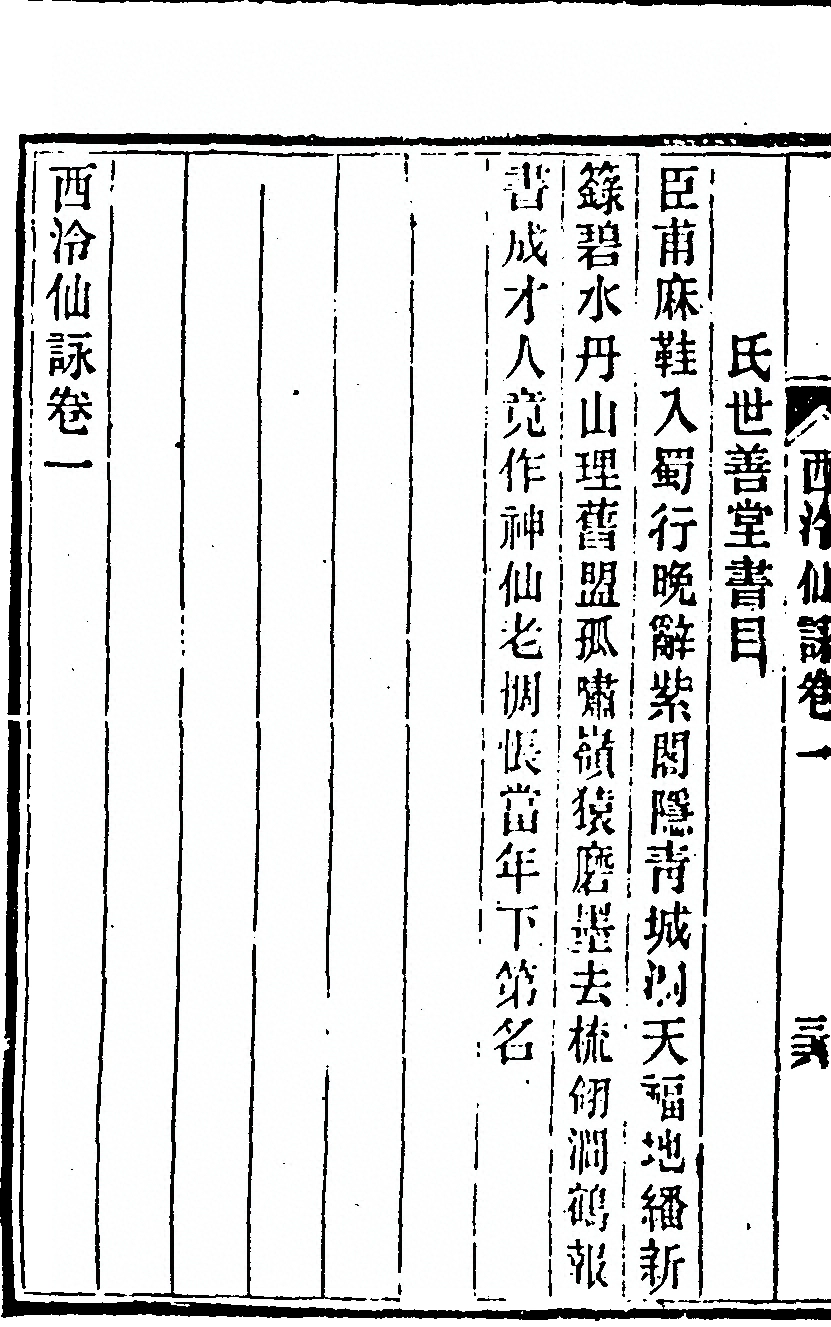 西泠仙詠卷一
氏世善堂書目
臣甫麻鞋入蜀行晚辭紫閣隱青城洞天福地繙新
籙碧水丹山理舊盟孤嘯嶺猿磨墨去梳翎澗鶴報
書成才人竟作神仙老惆悵當年下第名
西泠仙詠卷一